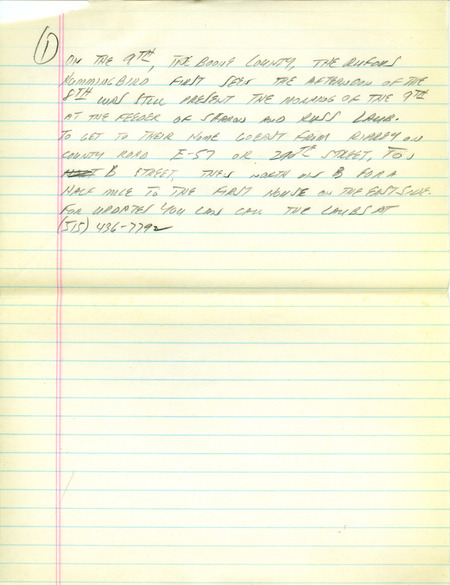 1
ON THE 9TH, IN BOONE COUNTY, THE RUFOUS
HUMMINGBIRD FIRST SEEN THE AFTERNOON OF THE
8TH WAS STILL PRESENT THE MORNING OF THE 9TH
AT THE FEEDER OF SHARON AND RUSS LAMB.
TO GET TO THEIR HOME GO EAST FROM RIPPEY ON
COUNTY ROAD E-57 OR STREET, TO
B STREET, THEN NORTH ON B FOR A
HALF MILE TO THE FIRST HOUSE ON THE EAST SIDE.
FOR UPDATES YOU CAN CALL THE LAMBS AT
(515) 436-7792